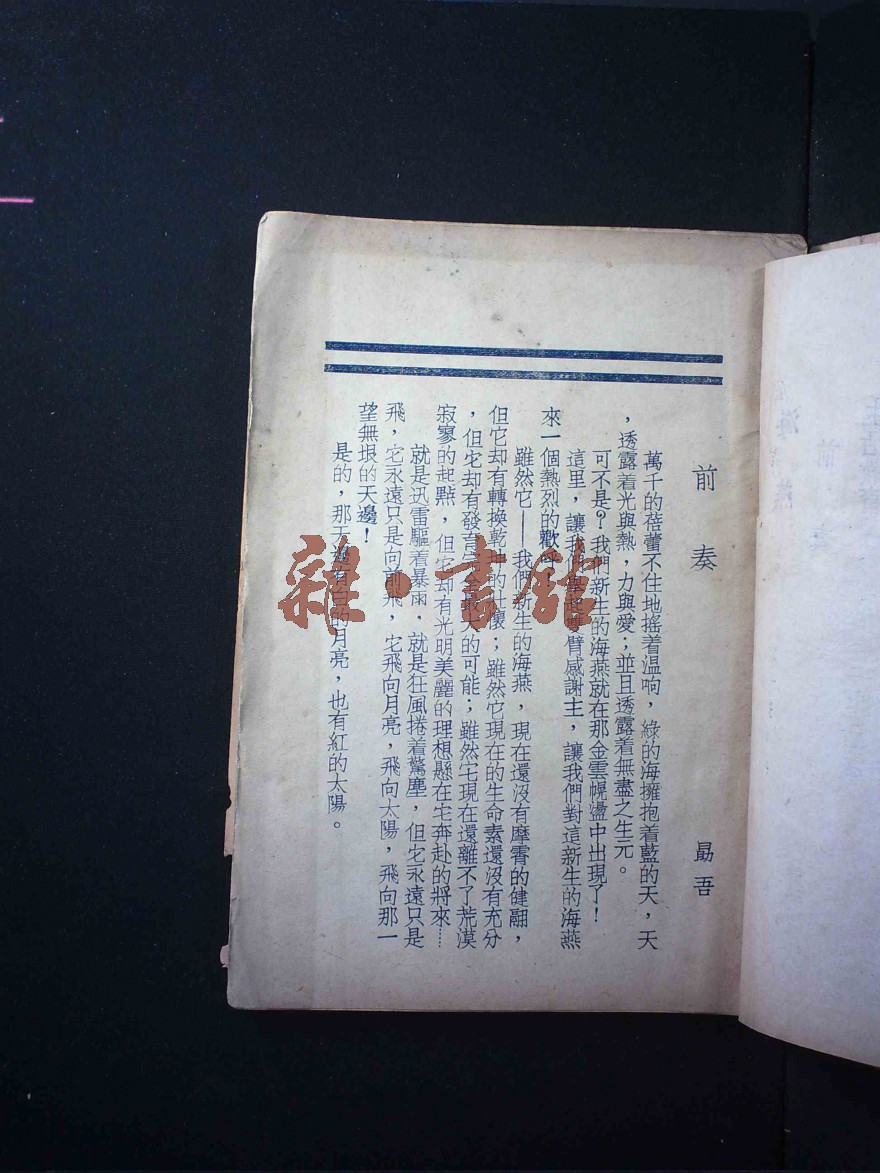 前奏
勗吾
萬千的蓓蕾不住地搖着温响，綠的海擁抱着藍的天，天
，透露着光與熱，力與愛；並且透露着無盡之生元。
可不是？我們新生的海燕就在那金雲幌盪中出現了！
這里，讓我們舉起雙臂感謝主，讓我們對這新生的海燕
來一個熱烈的歡呼
雖然它——我們新生的海燕，現在還沒有摩霄的健翮，
但它却有轉換乾坤的壯懷；雖然它現在的生命素還沒有充分
，但它却有發育的可能；雖然它現在還離不了荒漠
寂寥的起點，但它却有光明美麗的理想懸在它奔赴的將來……
就是迅雷驅着暴雨，就是狂風捲着驚塵，但它永遠只是
飛，它永遠只是向前飛，它飛向月亮，飛向太陽，飛向那一
望無垠的天邊！
是的，那天邊有白的月亮，也有紅的太陽。
雜·書館